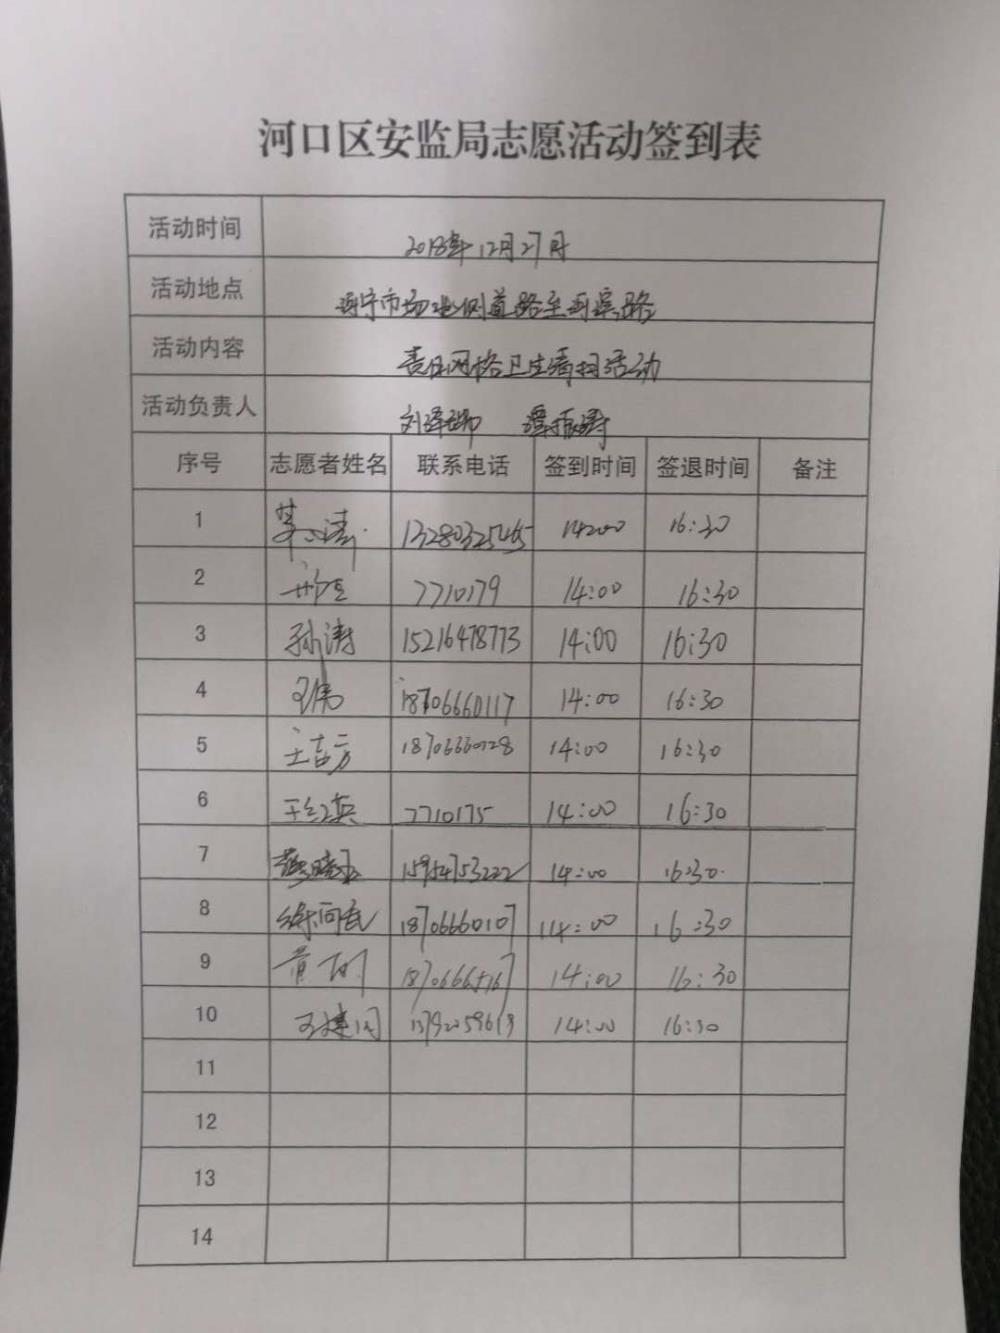 河口区安监局志愿活动签到表
活动时间 2018年12月27日
活动地点 市场北侧道路至河滨路
活动内容 责任网格卫生清扫活动
活动负责人
序号 志愿者姓名 联系电话 签到时间 签退时间 备注
1 13280325465 14:00 16:30
2 7710179 14:00 16:30
3 孙涛 15216478773 14:00 16:30
4 王伟 18706660117 14:00 16:30
5 14:00 16:30
6 王红英 7710175 14:00 16:30
7 15954753222 14:00 16:30
8 徐向民 18706660107 14:00 16:30
9 14:00 16:30
10 14:00 16:30
11
12
13
14